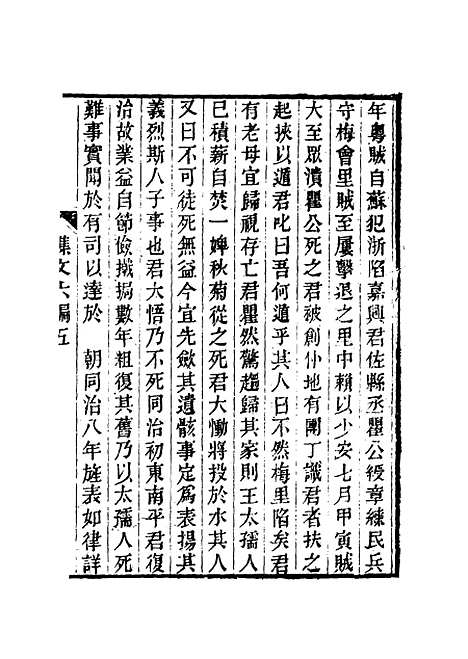 年粵賊自蘇犯浙陷嘉興君佐縣丞瞿公綬章練民兵
守梅會里賊至屢擊退之里中賴以少安七月甲寅賊
大至眾潰瞿公死之君被創仆地有團丁識君者扶之
起挾以遁君叱曰吾何遁乎其人曰不然梅里陷矣君
有老母宜歸視存亡君瞿然驚趨歸其家則王太孺人
已積薪自焚一婢秋菊從之死君大慟將投於水其人
又曰不可徒死無益今宜先斂其遺骸事定爲表揚其
義烈斯人子事也君大悟乃不死同治初東南平君復
治故業益自節儉撙搹數年粗復其舊乃以太孺人死
難事實聞於有司以達於　朝同治八年旌表如律詳
集文六編五